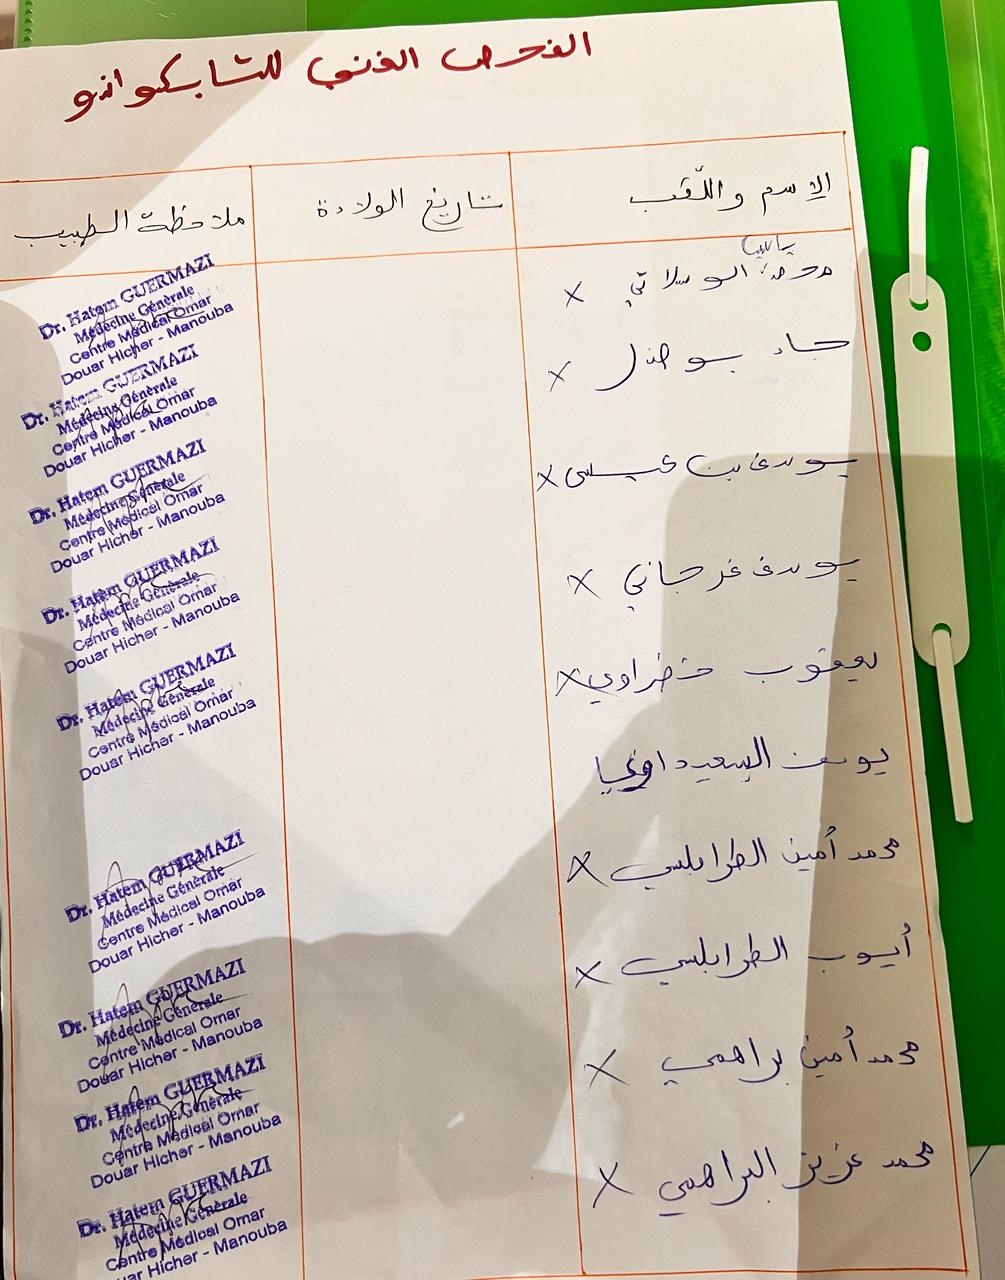 الفحص الفني للشابكواندو
الإسم واللّقب تاريخ الولادة ملاحظة الطبيب
ياسين
محمد الوسلاتي X
Dr. Hatem GUERMAZI
Médecine Générale
Centre Médical Omar
Douar Hicher - Manouba
جاد بو X
Dr. Hatem GUERMAZI
Médecine Générale
Centre Médical Omar
Douar Hicher - Manouba
يوسف بن عيسى X
Dr. Hatem GUERMAZI
Médecine Générale
Centre Médical Omar
Douar Hicher - Manouba
يوسف فرجاني X
Dr. Hatem GUERMAZI
Médecine Générale
Centre Médical Omar
Douar Hicher - Manouba
يعقوب خضراوي X
Dr. Hatem GUERMAZI
Médecine Générale
Centre Médical Omar
Douar Hicher - Manouba
يوسف السعيداوي
محمد أمين الطرابلسي X
Dr. Hatem GUERMAZI
Médecine Générale
Centre Médical Omar
Douar Hicher - Manouba
أيوب الطرابلسي X
Dr. Hatem GUERMAZI
Médecine Générale
Centre Médical Omar
Douar Hicher - Manouba
محمد أمين براهمي X
Dr. Hatem GUERMAZI
Médecine Générale
Centre Médical Omar
Douar Hicher - Manouba
محمد عزيز البراهمي X
Dr. Hatem GUERMAZI
Médecine Générale
Centre Médical Omar
Douar Hicher - Manouba